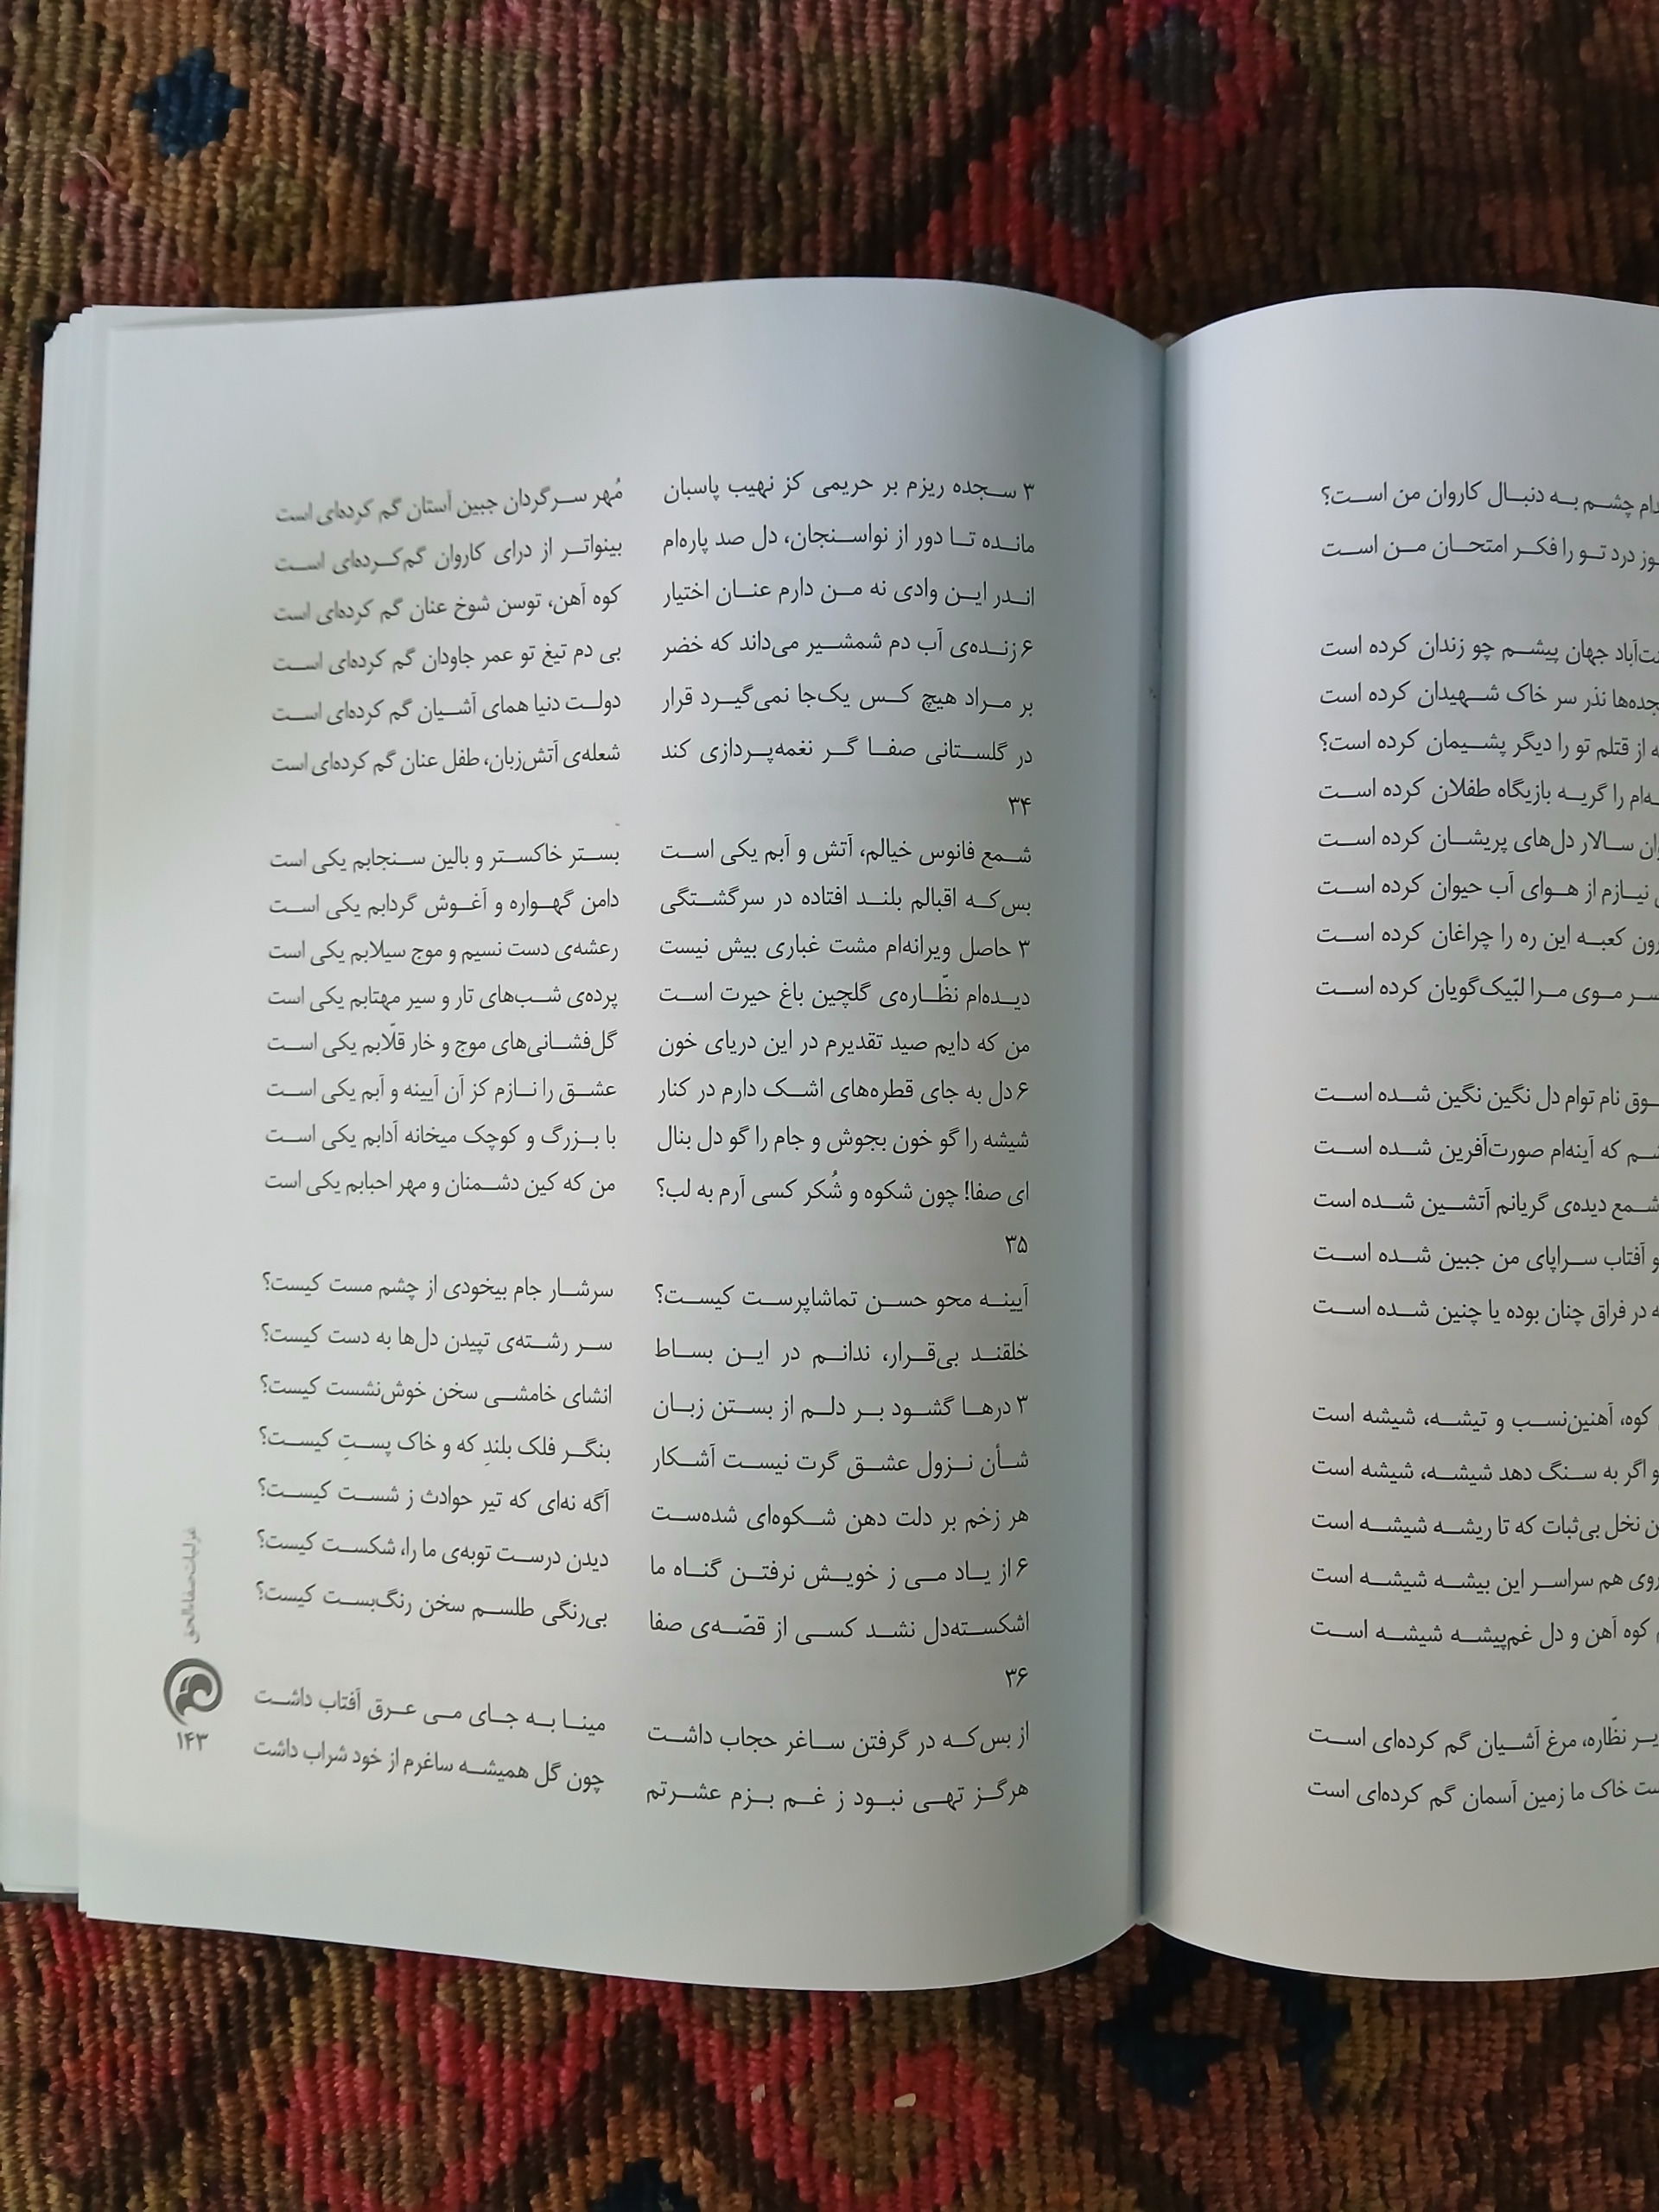 ۳ سجده ریزم بر حریمی کز نهیب پاسبان مُهر سرگردان جبین آستان گم کرده‌ای است
مانده تا دور از نواسنجان، دل صد پاره‌ام بینواتر از درای کاروان گم‌کرده‌ای است
اندر این وادی نه من دارم عنان اختیار کوه آهن، توسن شوخ عنان گم کرده‌ای است
۶ زنده‌ی آب دم شمشیر می‌داند که خضر بی دم تیغ تو عمر جاودان گم کرده‌ای است
بر مراد هیچ کس یک‌جا نمی‌گیرد قرار دولت دنیا همای آشیان گم کرده‌ای است
در گلستانی صفا گر نغمه‌پردازی کند شعله‌ی آتش‌زبان، طفل عنان گم کرده‌ای است
۳۴
شمع فانوس خیالم، آتش و آبم یکی است بستر خاکستر و بالین سنجابم یکی است
بس‌که اقبالم بلند افتاده در سرگشتگی دامن گهواره و آغوش گردابم یکی است
۳ حاصل ویرانه‌ام مشت غباری بیش نیست رعشه‌ی دست نسیم و موج سیلابم یکی است
دیده‌ام نظّاره‌ی گلچین باغ حیرت است پرده‌ی شب‌های تار و سیر مهتابم یکی است
من که دایم صید تقدیرم در این دریای خون گل‌فشانی‌های موج و خار قلّابم یکی است
۶ دل به جای قطره‌های اشک دارم در کنار عشق را نازم کز آن آیینه و آبم یکی است
شیشه را گو خون بجوش و جام را گو دل بنال با بزرگ و کوچک میخانه آدابم یکی است
ای صفا! چون شکوه و شُکر کسی آرم به لب؟ من که کین دشمنان و مهر احبابم یکی است
۳۵
آیینه محو حسن تماشاپرست کیست؟ سرشار جام بیخودی از چشم مست کیست؟
خلقند بی‌قرار، ندانم در این بساط سر رشته‌ی تپیدن دل‌ها به دست کیست؟
۳ درها گشود بر دلم از بستن زبان انشای خامشی سخن خوش‌نشست کیست؟
شأن نزول عشق گرت نیست آشکار بنگر فلک بلندِ که و خاک پستِ کیست؟
هر زخم بر دلت دهن شکوه‌ای شده‌ست آگه نه‌ای که تیر حوادث ز شست کیست؟
۶ از یاد می ز خویش نرفتن گناه ما دیدن درست توبه‌ی ما را، شکست کیست؟
اشکسته‌دل نشد کسی از قصّه‌ی صفا بی‌رنگی طلسم سخن رنگ‌بست کیست؟
۳۶
از بس‌که در گرفتن ساغر حجاب داشت مینا به جای می عرق آفتاب داشت
هرگز تهی نبود ز غم بزم عشرتم چون گل همیشه ساغرم از خود شراب داشت
غزلیات صفاءالحق
۱۴۳
چشم به دنبال کاروان من است؟
درد تو را فکر امتحان من است
جهان پیشم چو زندان کرده است
نذر سر خاک شهیدان کرده است
از قتلم تو را دیگر پشیمان کرده است؟
را گریه بازیگاه طفلان کرده است
سالار دل‌های پریشان کرده است
نیازم از هوای آب حیوان کرده است
کعبه این ره را چراغان کرده است
موی مرا لبّیک‌گویان کرده است
نام توام دل نگین نگین شده است
که آینه‌ام صورت‌آفرین شده است
شمع دیده‌ی گریانم آتشین شده است
و آفتاب سراپای من جبین شده است
در فراق چنان بوده یا چنین شده است
کوه، آهنین‌نسب و تیشه، شیشه است
و اگر به سنگ دهد شیشه، شیشه است
نخل بی‌ثبات که تا ریشه شیشه است
روی هم سراسر این بیشه شیشه است
کوه آهن و دل غم‌پیشه شیشه است
نظّاره، مرغ آشیان گم کرده‌ای است
خاک ما زمین آسمان گم کرده‌ای است